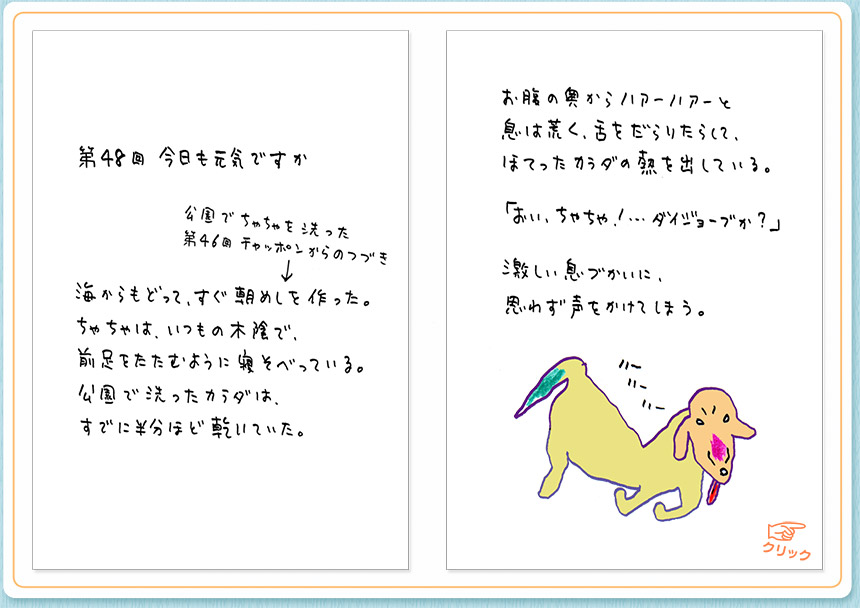 第48回 今日も元気ですか
公園でちゃちゃを洗った
第46回 チャッポンからのつづき
海からもどって、すぐ朝めしを作った。
ちゃちゃは、いつもの木陰で、
前足をたたむように寝そべっている。
公園で洗ったカラダは、
すでに半分ほど乾いていた。
お腹の奥からハアーハアーと
息は荒く、舌をだらりたらして、
ほてったカラダの熱を出している。
「おい、ちゃちゃ!…ダイジョーブか?」
激しい息づかいに、
思わず声をかけてしまう。
クリック